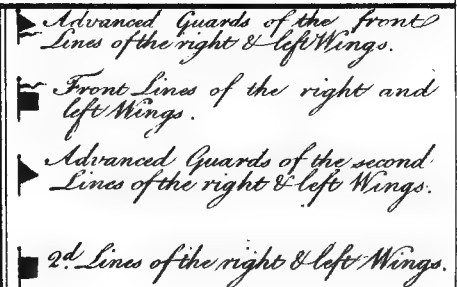 Advanced Guards of the front
Lines of the right & left Wings.
Front Lines of the right and
left Wings.
Advanced Guards of the second
Lines of the right & left Wings.
2d. Lines of the right & left Wings.